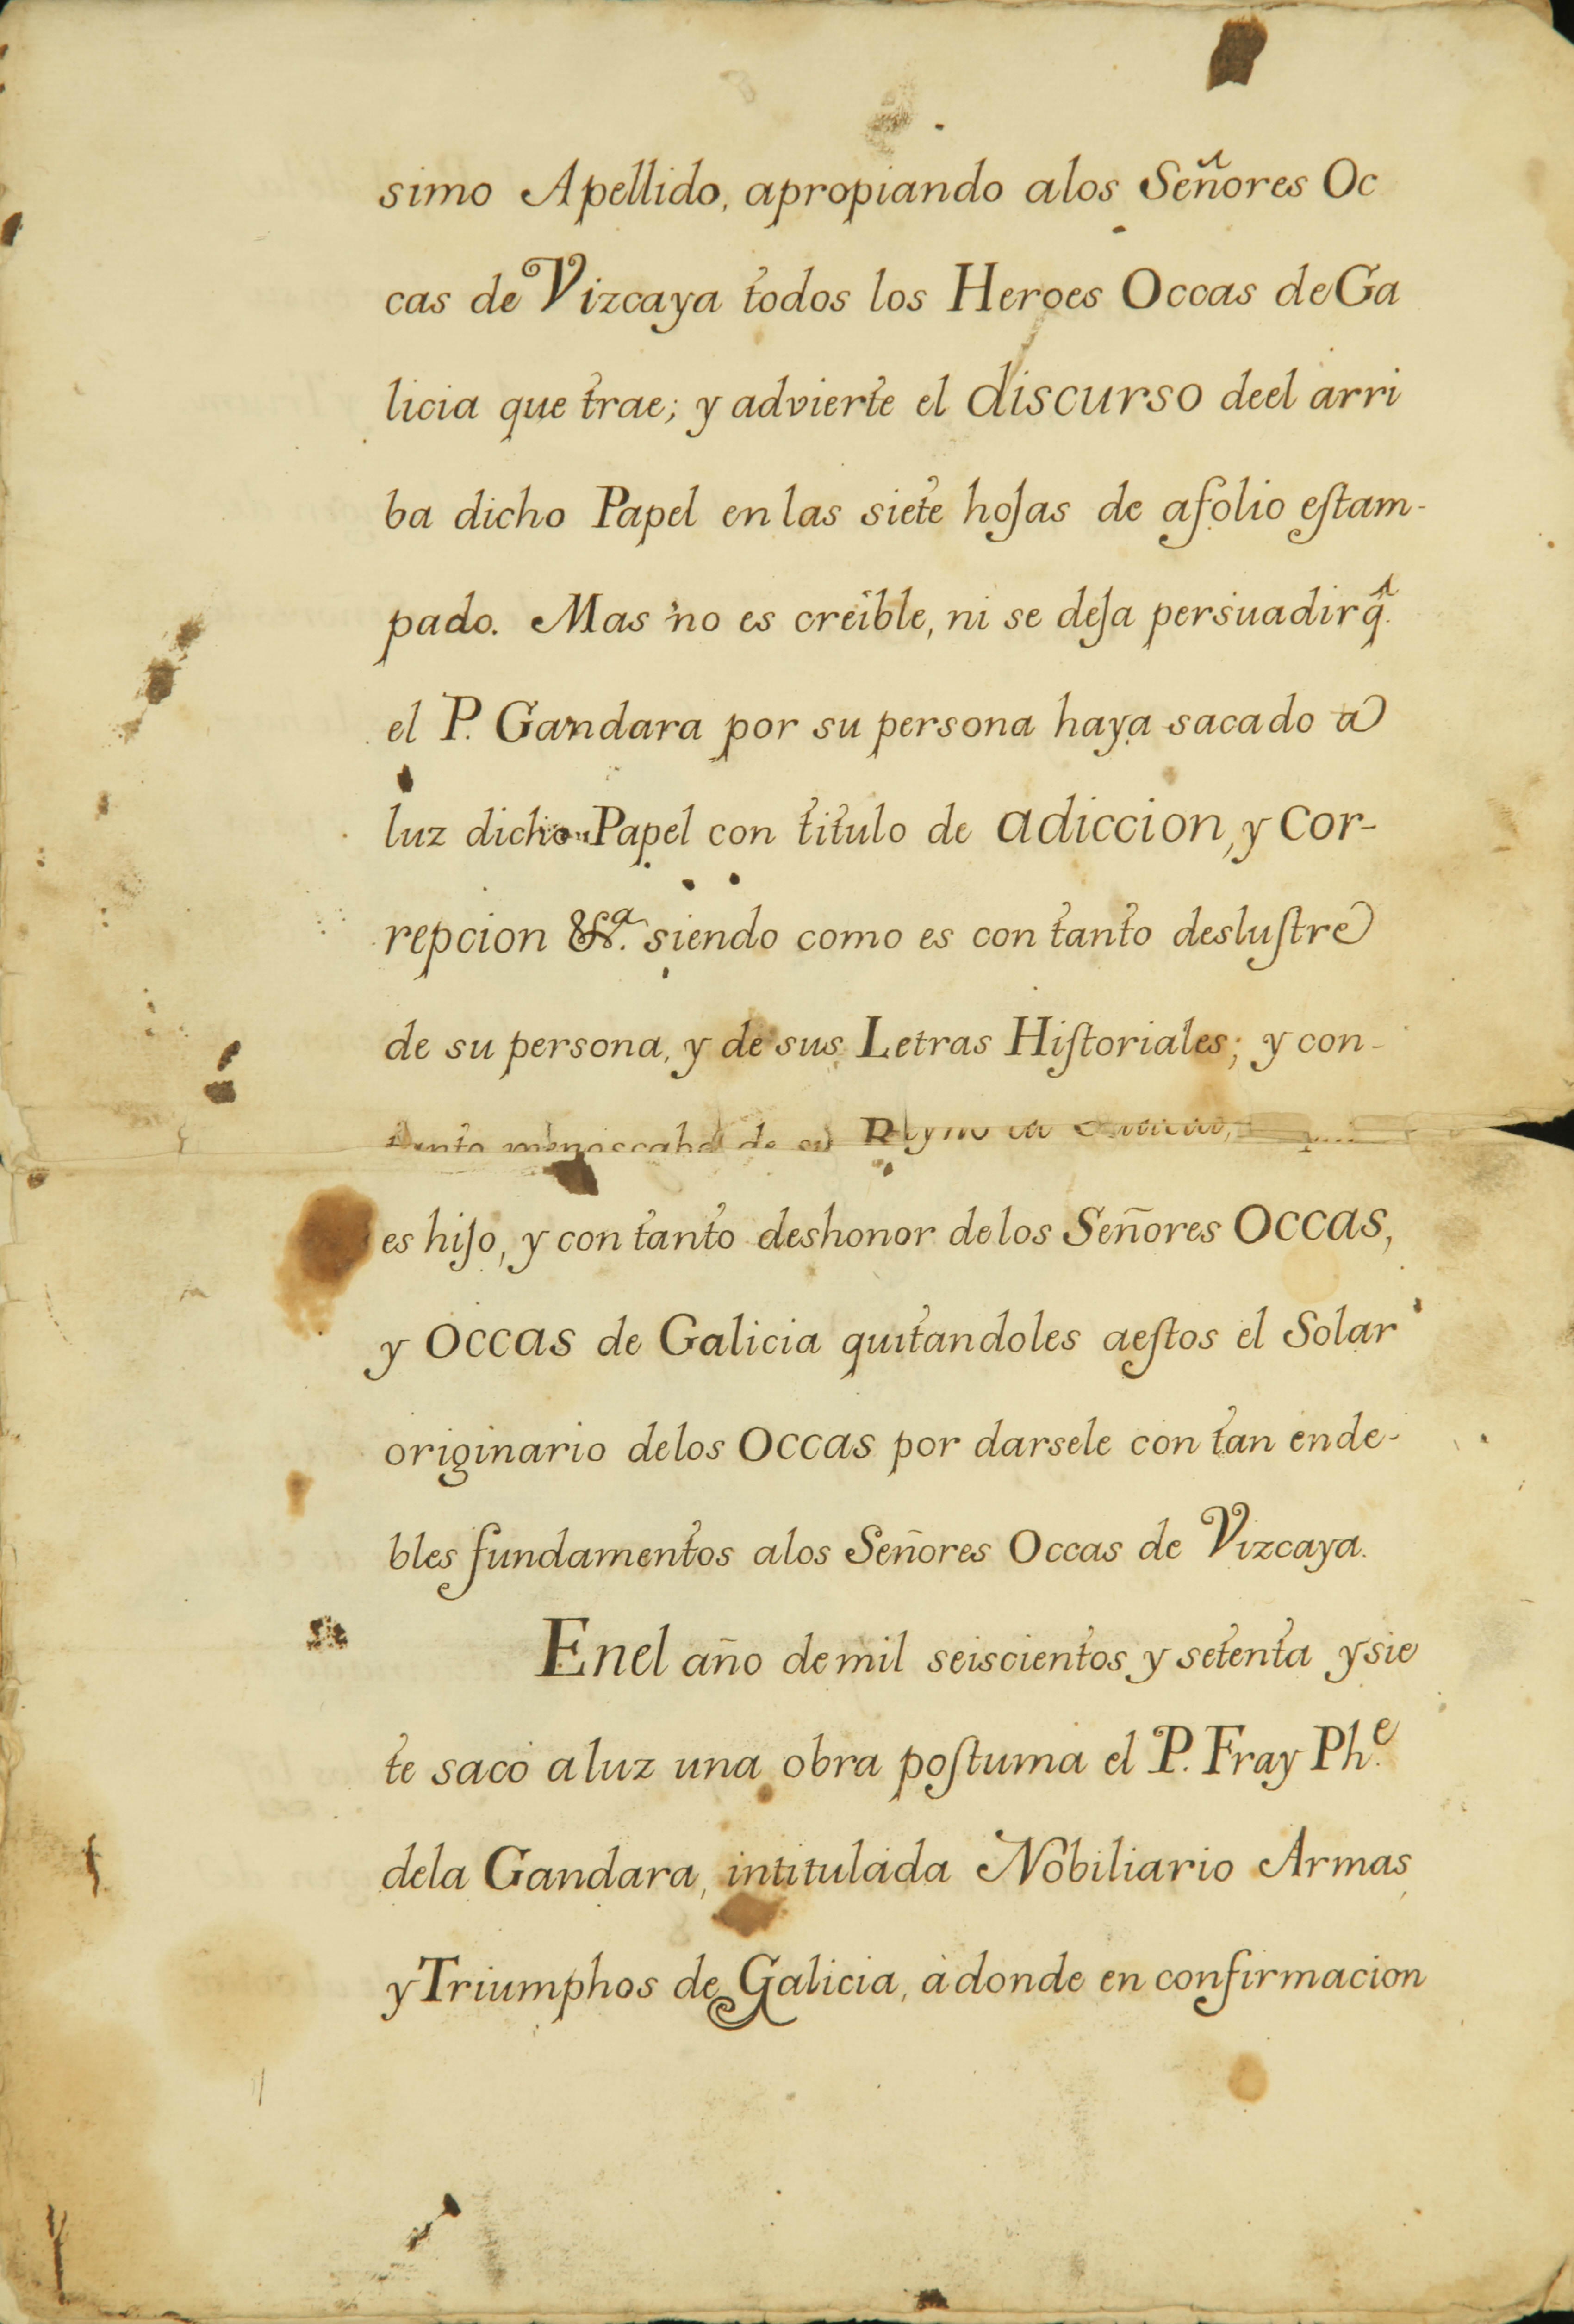 simo Apellido, apropiando alos Señores Oc
cas de Vizcaya todos los Heroes Occas de Ga
licia que trae; y advierte el discurso deel arri
ba dicho Papel en las siete hojas de afolio eſtam-
pado. Mas no es creible, ni se deja persuadir q̂.
el P. Gandara por su persona haya sacado a
luz dicho Papel con titulo de adiccion, y Cor-
repcion &ª. siendo como es con tanto desluſtre
de su persona, y de sus Letras Hiſtoriales; y con-
tanto menoscabo de su Reyno
es hijo, y con tanto deshonor delos Señores Occas,
y Occas de Galicia quitandoles aeſtos el Solar
originario delos Occas por darsele con tan ende-
bles fundamentos alos Señores Occas de Vizcaya.
Enel año demil seiscientos y setenta y sie
te sacó a luz una obra poſtuma el P. Fray Ph.e
dela Gandara, intitulada Nobiliario Armas,
y Triumphos de Galicia, à donde en confirmacion